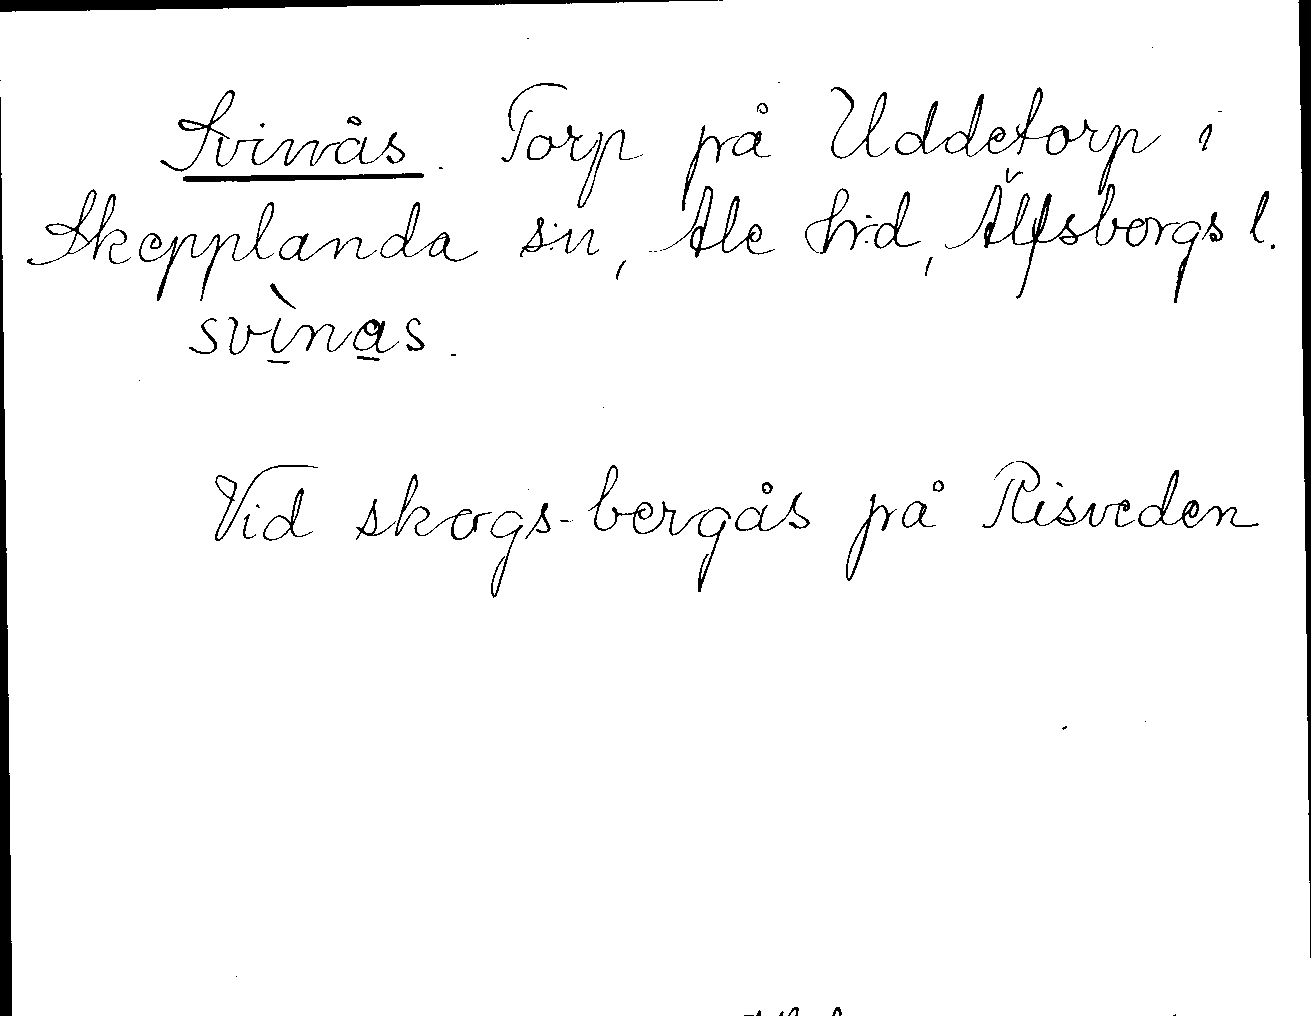 Svinås. Torp på Uddetorp i
Skepplanda s:n, Ale h:d, Älfsborgs l.
svìnas.
Vid skogs-bergås på Risveden